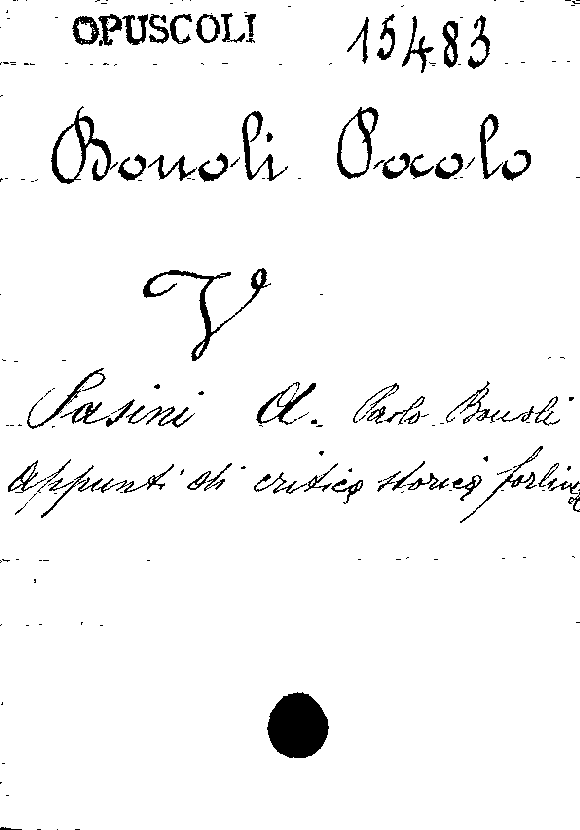 OPUSCOLI 15483
Bonoli Paolo
V
Pasini A. Paolo Bonoli
appunti di critica storica